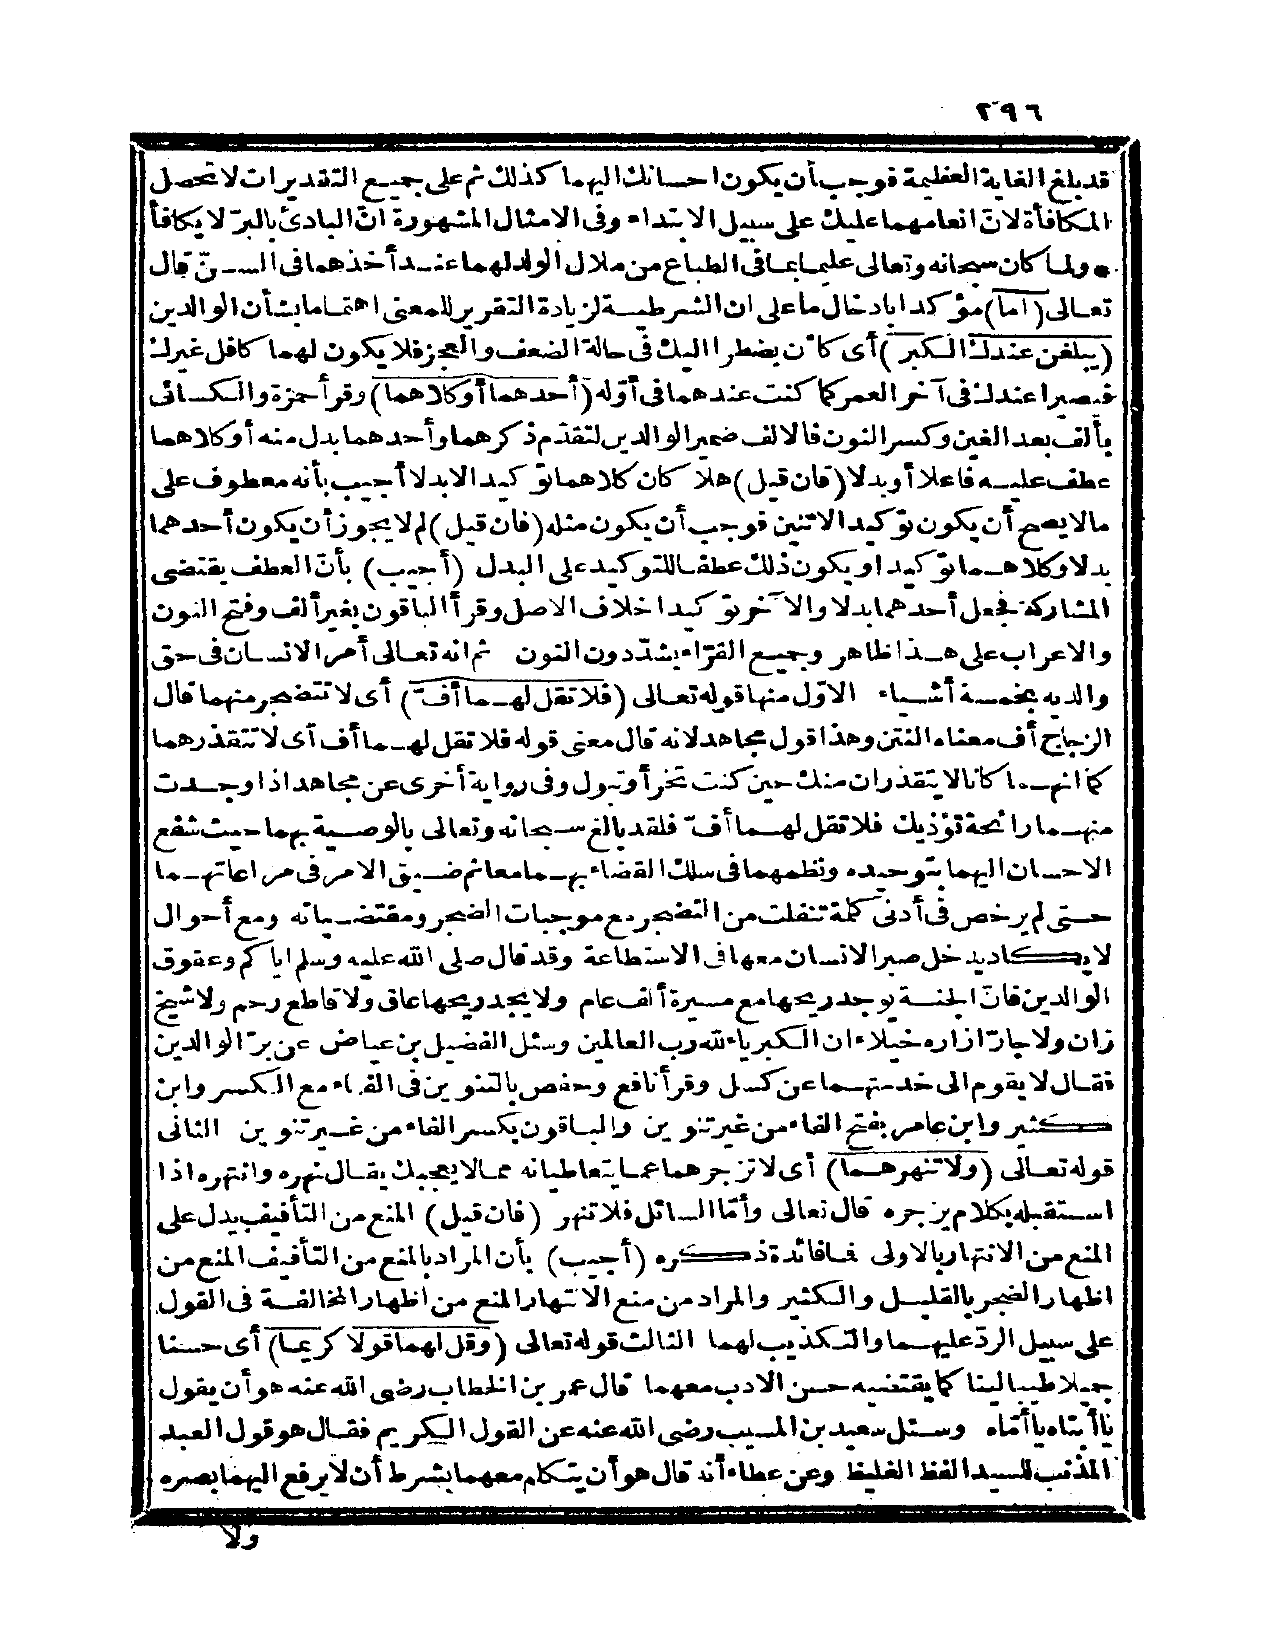 ٢٩٦
قد بلغ الغاية العظيمة فوجب أن يكون احسانك اليهما كذلك ثم على جميع التقديرات لا تحصل
المكافأة لانّ انعامهما عليك على سبيل الابتداء وفى الامثال المشهورة انّ البادئ بالبرّ لا يكافأ
* ولما كان سبحانه وتعالى عليما بما فى الطباع من ملال الولد لهما عند أخذهما فى السنّ قال
تعالى (اما) مؤكدا بادخال ما على ان الشرطية لزيادة التقرير للمعنى اهتماما بشأن الوالدين
(يبلغن عندك الكبر) أى كأن يضطرا اليك فى حالة الضعف والعجز فلا يكون لهما كافل غيرك
فيصيرا عندك فى آخر العمر كما كنت عندهما فى أوّله (أحدهما أو كلاهما) وقرأ حمزة والكسائى
بألف بعد الغين وكسر النون فالالف ضمير الوالدين لتقدّم ذكرهما وأحدهما بدل منه أو كلاهما
عطف عليه فاعلا أو بدلا (فان قيل) هلا كان كلاهما توكيدا لا بدلا أجيب بأنه معطوف على
ما لا يصح أن يكون توكيدا لاثنين فوجب أن يكون مثله (فان قيل) لم لا يجوز أن يكون أحدهما
بدلا وكلاهما توكيدا ويكون ذلك عطفا للتوكيد على البدل (أجيب) بأنّ العطف يقتضى
المشاركة فجعل أحدهما بدلا والآخر توكيدا خلاف الاصل وقرأ الباقون بغير ألف وفتح النون
والاعراب على هذا ظاهر وجميع القرّاء يشدّدون النون ثم انه تعالى أمر الانسان فى حق
والديه بخمسة أشياء الاوّل منها قوله تعالى (فلا تقل لهما أفّ) أى لا تتضجر منهما قال
الزجاج أف معناه النتن وهذا قول مجاهد لانه قال معنى قوله فلا تقل لهما أف أى لا تتقذرهما
كما انهما كانا لا يتقذران منك حين كنت تخرأ وتبول وفى رواية أخرى عن مجاهد اذا وجدت
منهما رائحة تؤذيك فلا تقل لهما أفّ فلقد بالغ سبحانه وتعالى بالوصية بهما حيث شفع
الاحسان اليهما بتوحيده ونظمهما فى سلك القضاء بهما معا ثم ضيق الامر فى مراعاتهما
حتى لم يرخص فى أدنى كلة تنفلت من التضجر مع موجبات الضجر ومقتضياته ومع أحوال
لا يكاد يدخل صبر الانسان معها فى الاستطاعة وقد قال صلى الله عليه وسلم اياكم وعقوق
الوالدين فانّ الجنة يوجد ريحها مع مسيرة ألف عام ولا يجد ريحها عاق ولا قاطع رحم ولا شيخ
زان ولا جارّ ازاره خيلاء ان الكبرياء لله رب العالمين وسئل الفضيل بن عياض عن برّ الوالدين
فقال لا يقوم الى خدمتهما عن كسل وقرأ نافع وحفص بالتنوين فى الفاء مع الكسر وابن
كثير وابن عامر بفتح الفاء من غير تنوين والباقون بكسر الفاء من غير تنوين الثانى
قوله تعالى (ولا تنهرهما) أى لا تزجرهما عما يتعاطيانه مما لا يعجبك يقال نهره وانتهره اذا
استقبله بكلام يزجره قال تعالى وأمّا السائل فلا تنهر (فان قيل) المنع من التأفيف يدل على
المنع من الانتهار بالاولى فما فائدة ذكره (أجيب) بأن المراد بالمنع من التأفيف المنع من
اظهار الضجر بالقليل والكثير والمراد من منع الانتهار المنع من اظهار المخالفة فى القول
على سبيل الردّ عليهما والتكذيب لهما الثالث قوله تعالى (وقل لهما قولا كريما) أى حسنا
جميلا طيبا لينا كما يقتضيه حسن الادب معهما قال عمر بن الخطاب رضى الله عنه هو أن يقول
يا أبتاه يا أمّاه وسئل سعيد بن المسيب رضى الله عنه عن القول الكريم فقال هو قول العبد
المذنب للسيد الفظ الغليظ وعن عطاء أنه قال هو أن يتكلم معهما بشرط أن لا يرفع اليهما بصره
ولا